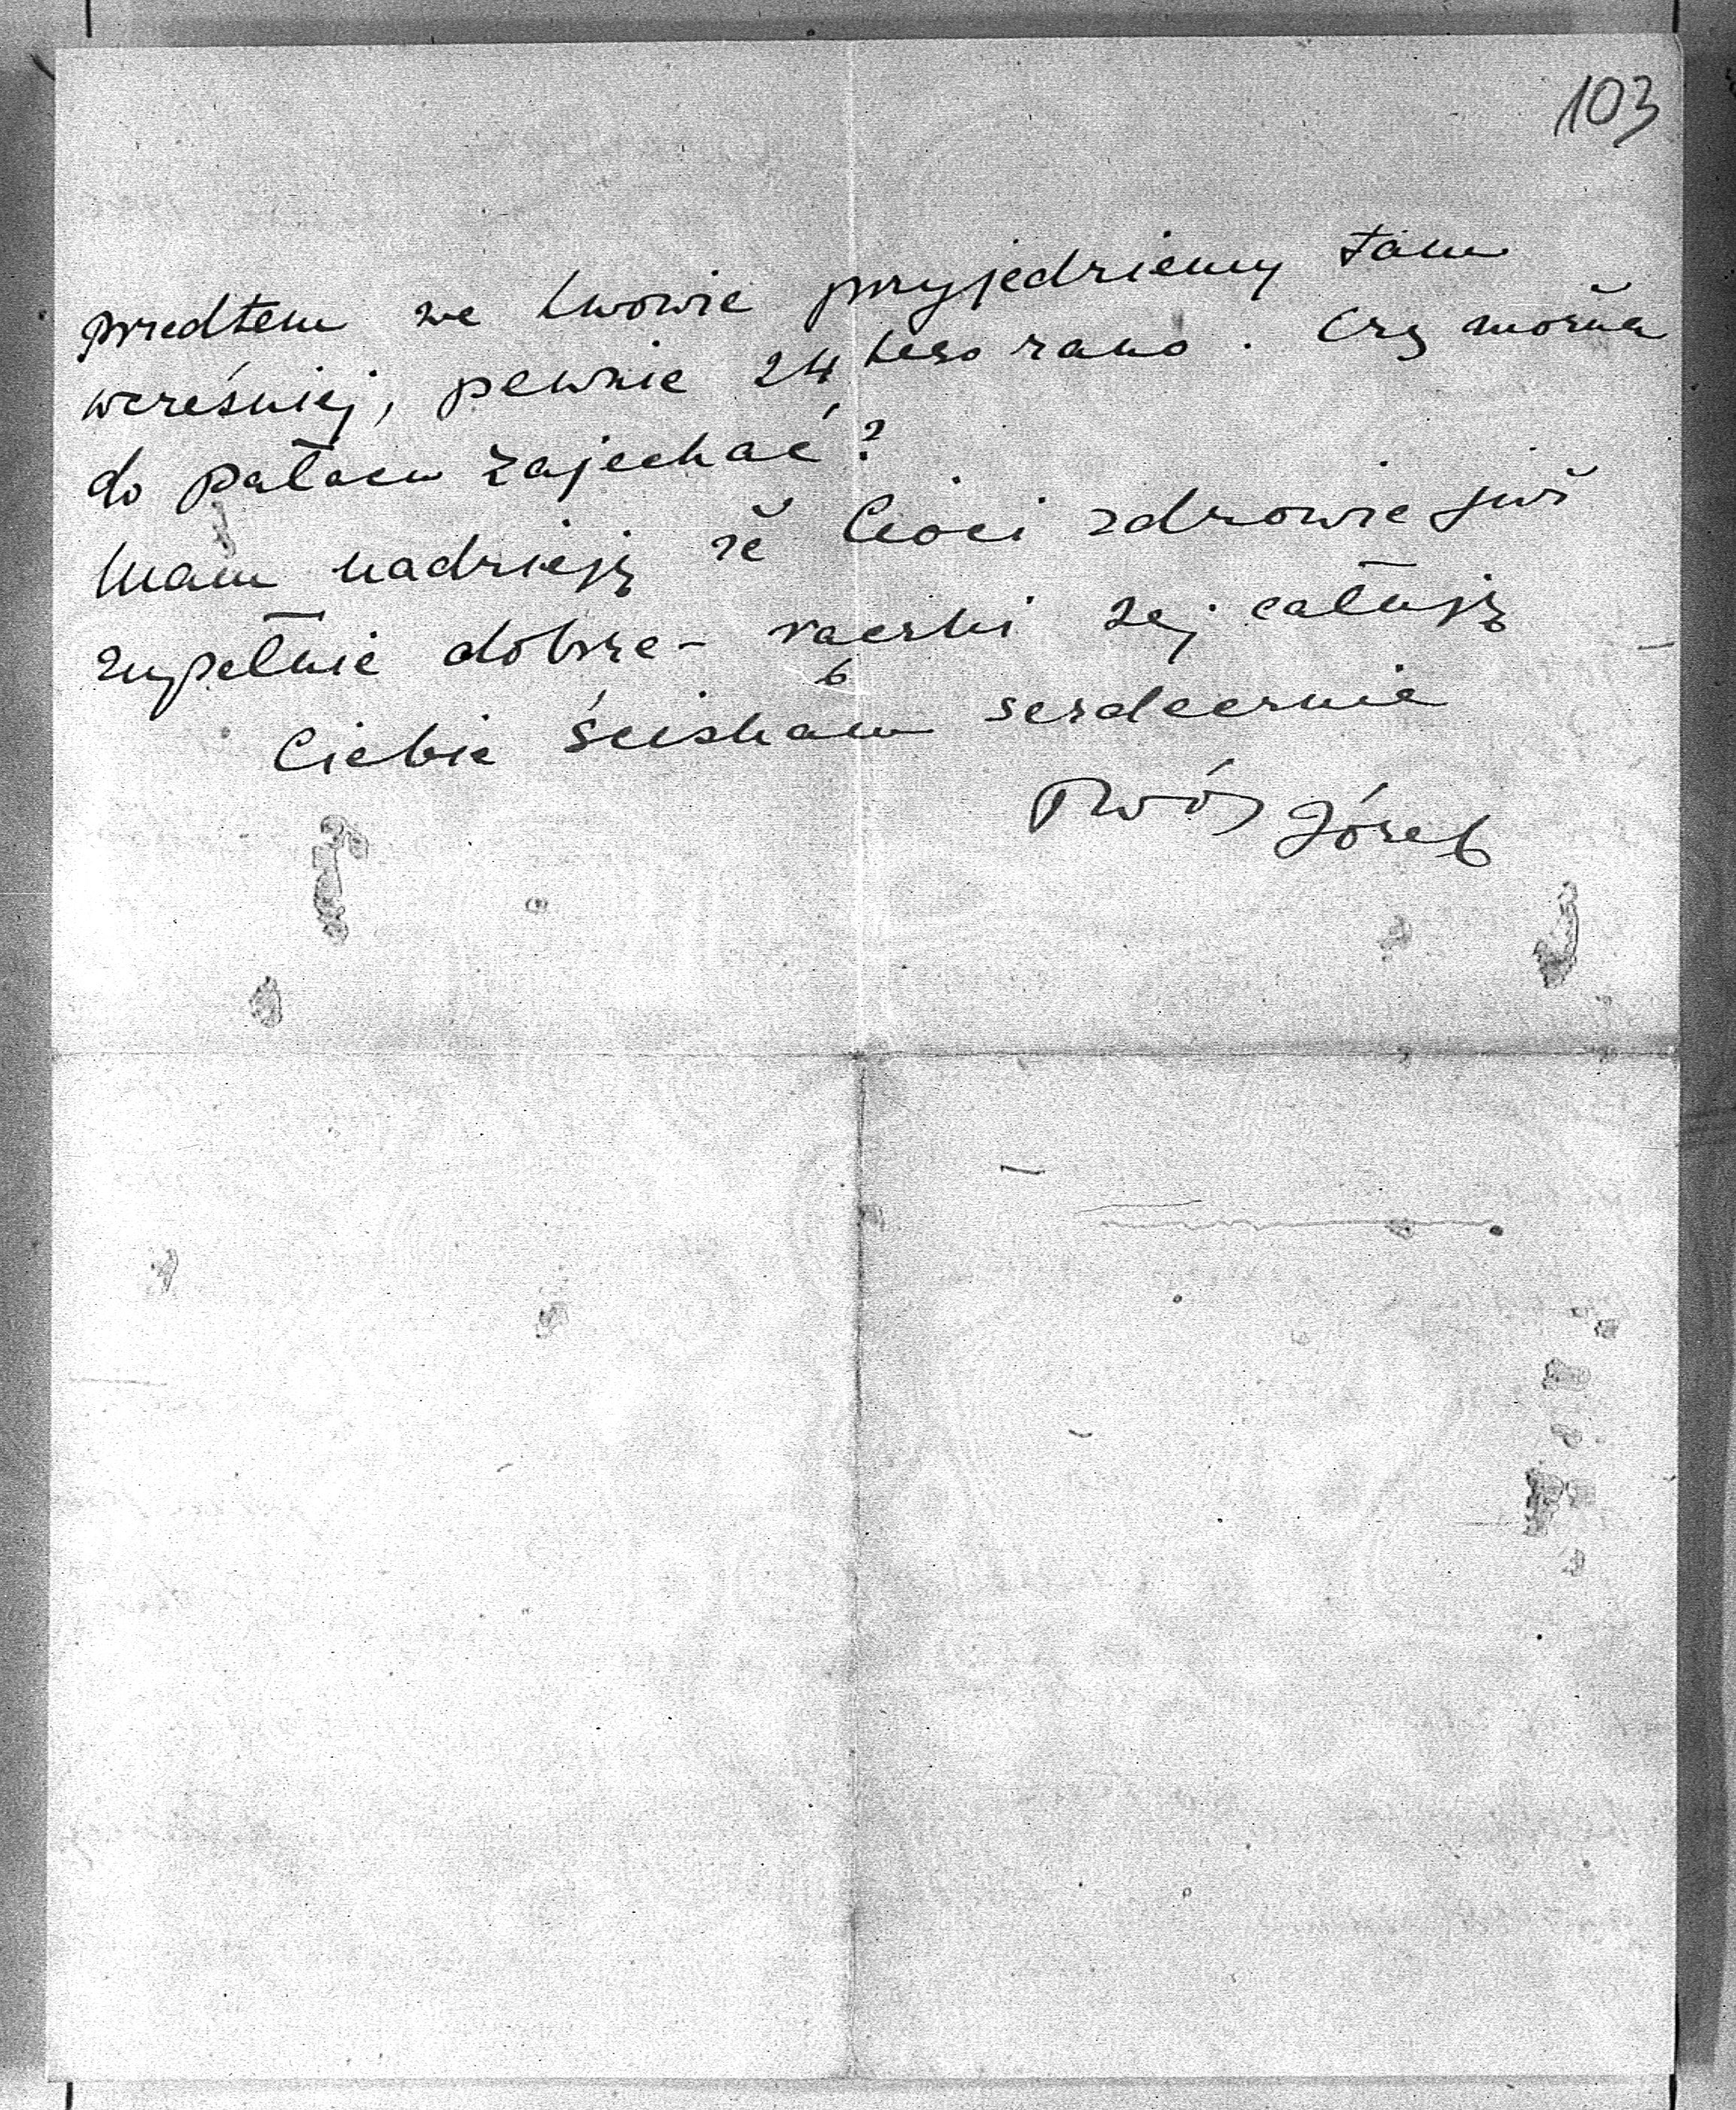 103
przedtem we Lwowie przyjedziemy tam
wcześniej, pewnie 24 tego rano. Czy można
do pałacu zajechać?
Mam nadzieję że Cioci zdrowie już
zupełnie dobrze – rączki Jej całuję
Ciebie ściskam serdecznie
Twój Józef